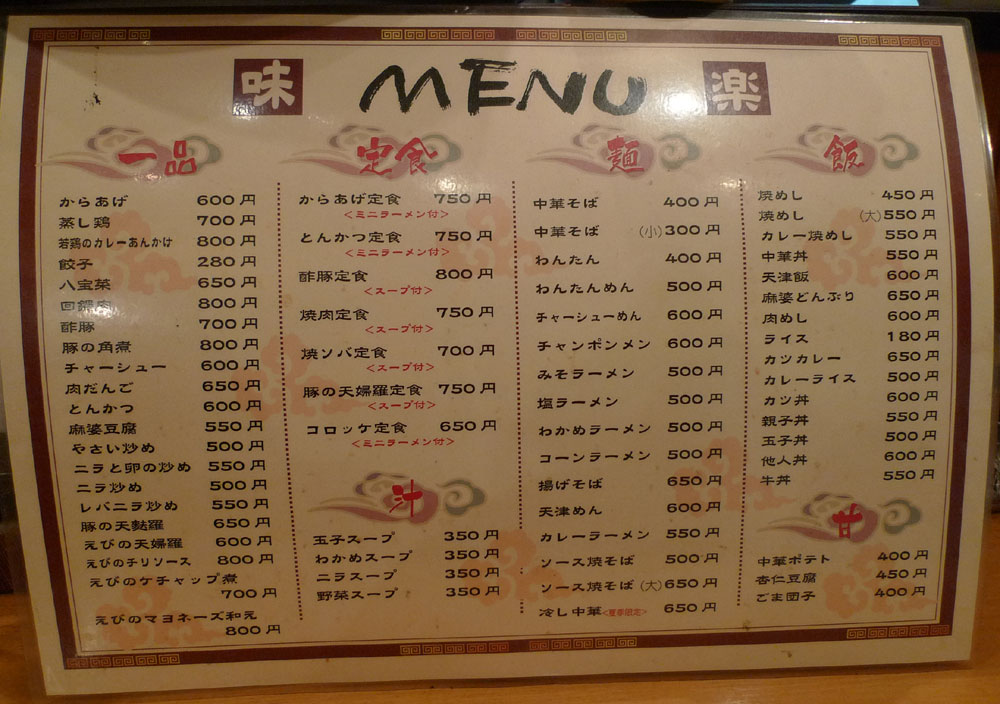 味 MENU 楽
一品
からあげ 600円
蒸し鶏 700円
若鶏のカレーあんかけ 800円
餃子 280円
八宝菜 650円
回鍋肉 800円
酢豚 700円
豚の角煮 800円
チャーシュー 600円
肉だんご 650円
とんかつ 600円
麻婆豆腐 550円
やさい炒め 500円
ニラと卵の炒め 550円
ニラ炒め 500円
レバニラ炒め 550円
豚の天麩羅 650円
えびの天婦羅 600円
えびのチリソース 800円
えびのケチャップ煮
700円
えびのマヨネーズ和え
800円
定食
からあげ定食 750円
<ミニラーメン付>
とんかつ定食 750円
<ミニラーメン付>
酢豚定食 800円
<スープ付>
焼肉定食 750円
<スープ付>
焼ソバ定食 700円
<スープ付>
豚の天婦羅定食 750円
<スープ付>
コロッケ定食 650円
<ミニラーメン付>
汁
玉子スープ 350円
わかめスープ 350円
ニラスープ 350円
野菜スープ 350円
麺
中華そば 400円
中華そば (小)300円
わんたん 400円
わんたんめん 500円
チャーシューめん 600円
チャンポンメン 600円
みそラーメン 500円
塩ラーメン 500円
わかめラーメン 500円
コーンラーメン 500円
揚げそば 650円
天津めん 600円
カレーラーメン 550円
ソース焼そば 500円
ソース焼そば(大)650円
冷し中華<夏季限定> 650円
飯
焼めし 450円
焼めし (大)550円
カレー焼めし 550円
中華丼 550円
天津飯 600円
麻婆どんぶり 650円
肉めし 600円
ライス 180円
カツカレー 650円
カレーライス 500円
カツ丼 600円
親子丼 550円
玉子丼 500円
他人丼 600円
牛丼 550円
甘
中華ポテト 400円
杏仁豆腐 450円
ごま団子 400円